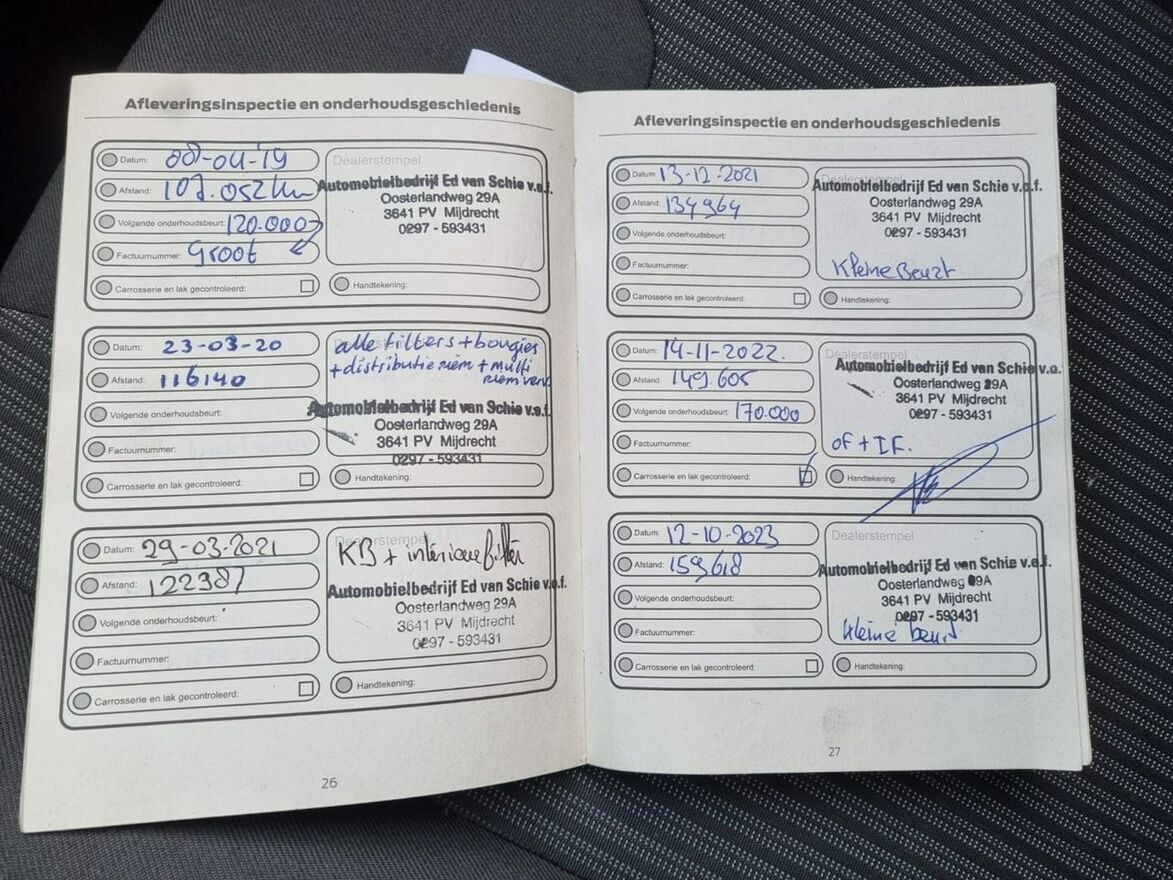 Afleveringsinspectie en onderhoudsgeschiedenis
Datum: 08-04-'19
Afstand: 107.052 km
Volgende onderhoudsbeurt: 120.000
Factuurnummer: Groot
Carrosserie en lak gecontroleerd:
Dealerstempel
Automobielbedrijf Ed van Schie v.o.f.
Oosterlandweg 29A
3641 PV Mijdrecht
0297 - 593431
Handtekening:
Datum: 23-03-20
Afstand: 116140
Volgende onderhoudsbeurt:
Factuurnummer:
Carrosserie en lak gecontroleerd:
alle filters + bougies
+ distributie riem + multi
riem verv
Automobielbedrijf Ed van Schie v.o.f.
Oosterlandweg 29A
3641 PV Mijdrecht
0297 - 593431
Handtekening:
Datum: 29-03-2021
Afstand: 122387
Volgende onderhoudsbeurt:
Factuurnummer:
Carrosserie en lak gecontroleerd:
Dealerstempel
KB + interieurfilter
Automobielbedrijf Ed van Schie v.o.f.
Oosterlandweg 29A
3641 PV Mijdrecht
0297 - 593431
Handtekening:
26
Afleveringsinspectie en onderhoudsgeschiedenis
Datum: 13-12-2021
Afstand: 134964
Volgende onderhoudsbeurt:
Factuurnummer:
Carrosserie en lak gecontroleerd:
Dealerstempel
Automobielbedrijf Ed van Schie v.o.f.
Oosterlandweg 29A
3641 PV Mijdrecht
0297 - 593431
Kleine Beurt
Handtekening:
Datum: 14-11-2022.
Afstand: 149.605
Volgende onderhoudsbeurt: 170.000
Factuurnummer:
Carrosserie en lak gecontroleerd:
Dealerstempel
Automobielbedrijf Ed van Schie v.o.
Oosterlandweg 29A
3641 PV Mijdrecht
0297 - 593431
of + IF.
Handtekening:
Datum: 12-10-2023
Afstand: 159618
Volgende onderhoudsbeurt:
Factuurnummer:
Carrosserie en lak gecontroleerd:
Dealerstempel
Automobielbedrijf Ed van Schie v.o.f.
Oosterlandweg 29A
3641 PV Mijdrecht
0297 - 593431
kleine beurt
Handtekening:
27